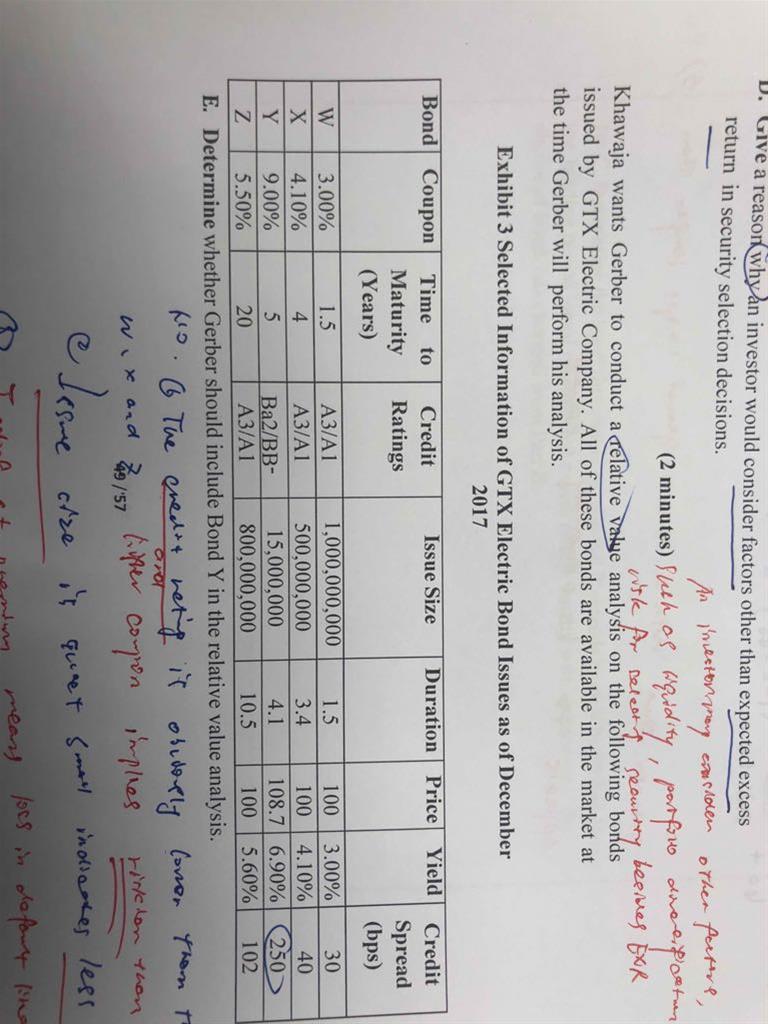 D. Give a reason why an investor would consider factors other than expected excess
return in security selection decisions.
An investor may consider other factors,
(2 minutes) such as liquidity, portfolio diversification
risk for selecting security besides EXR
Khawaja wants Gerber to conduct a relative value analysis on the following bonds
issued by GTX Electric Company. All of these bonds are available in the market at
the time Gerber will perform his analysis.
Exhibit 3 Selected Information of GTX Electric Bond Issues as of December
2017
Bond Coupon Time to Maturity (Years) Credit Ratings Issue Size Duration Price Yield Credit Spread (bps)
W 3.00% 1.5 A3/A1 1,000,000,000 1.5 100 3.00% 30
X 4.10% 4 A3/A1 500,000,000 3.4 100 4.10% 40
Y 9.00% 5 Ba2/BB- 15,000,000 4.1 108.7 6.90% 250
Z 5.50% 20 A3/A1 800,000,000 10.5 100 5.60% 102
E. Determine whether Gerber should include Bond Y in the relative value analysis.
No. The credit rating is obviously lower than
and
w, x and z higher coupon implies riskier than
49/57
Issue size is small indicates less
at premium means loss in default